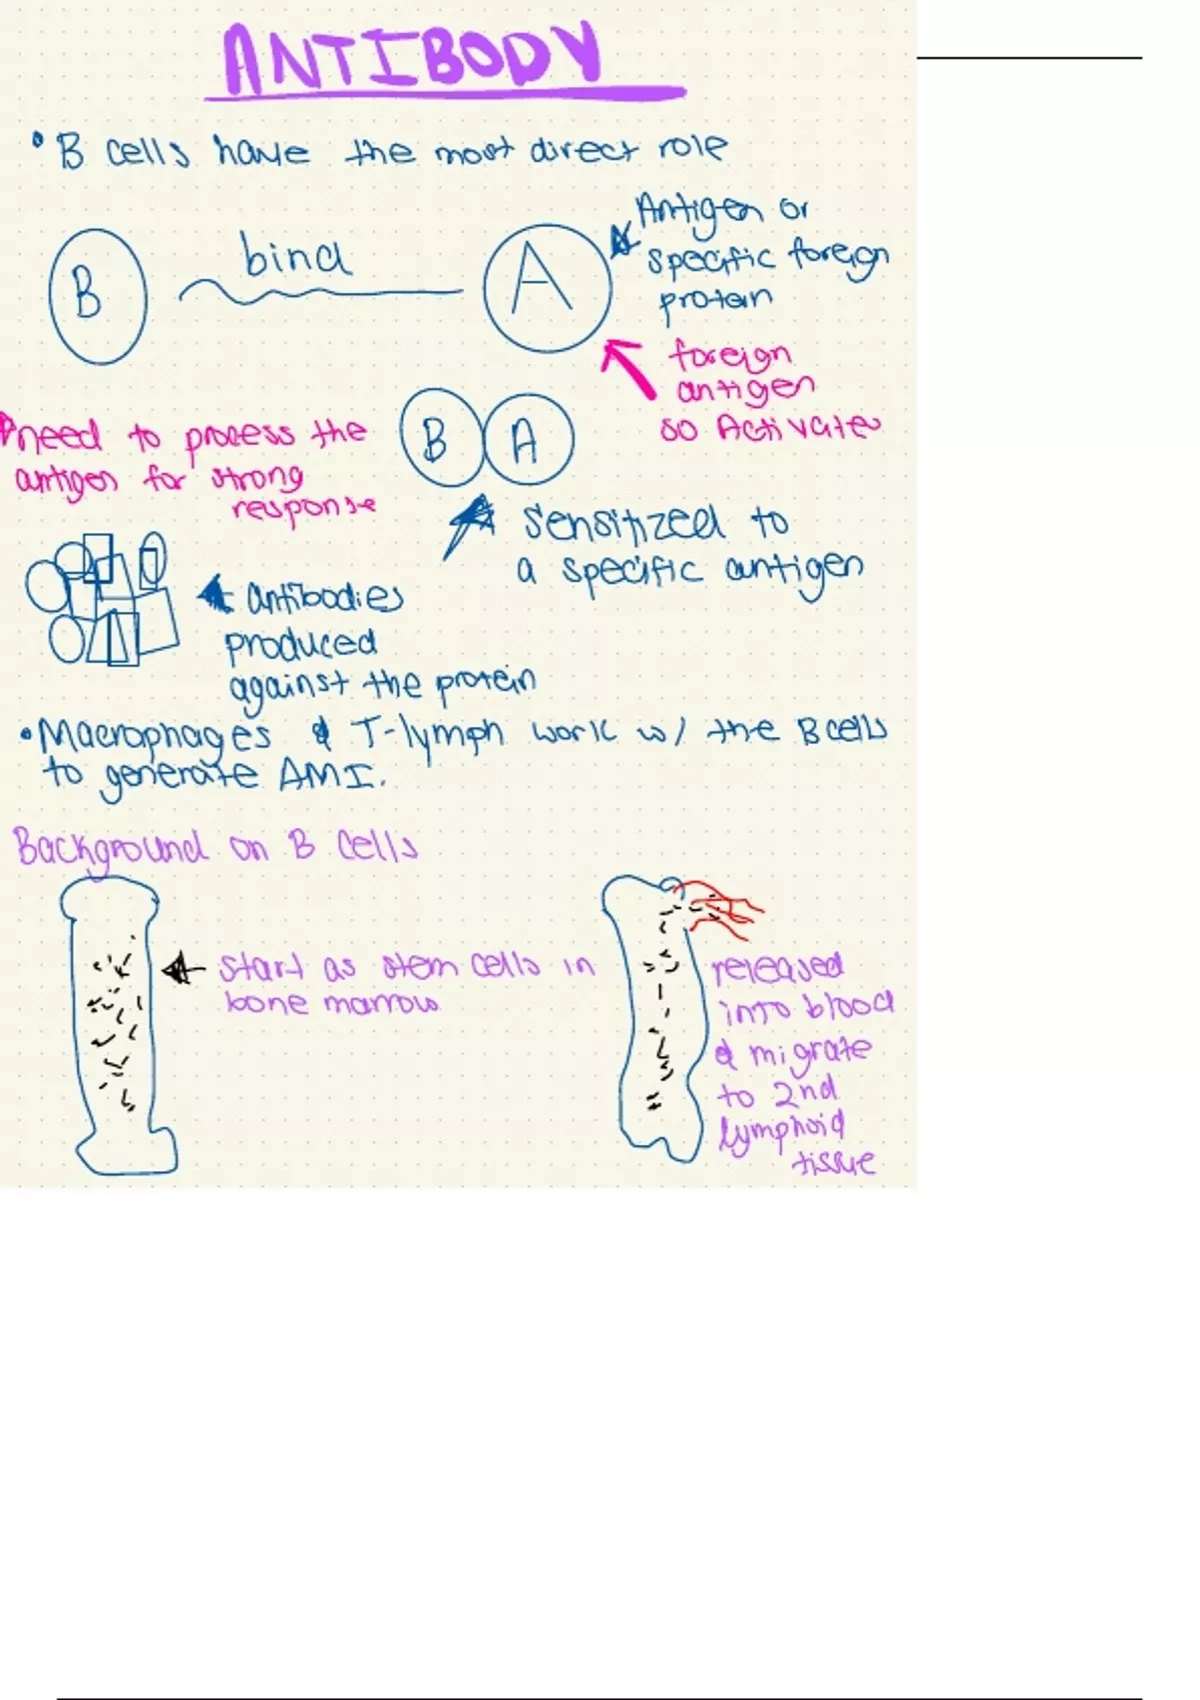 ANTIBODY
• B cells have the most direct role
B
bind
A
Antigen or
specific foreign
protein
foreign
antigen
so Activate
need to process the
antigen for strong
response
B
A
Sensitized to
a specific antigen
antibodies
produced
against the protein
• Macrophages & T-lymph work w/ the B cells
to generate AMI.
Background on B Cells
start as stem cells in
bone marrow
released
into blood
& migrate
to 2nd
lymphoid
tissue